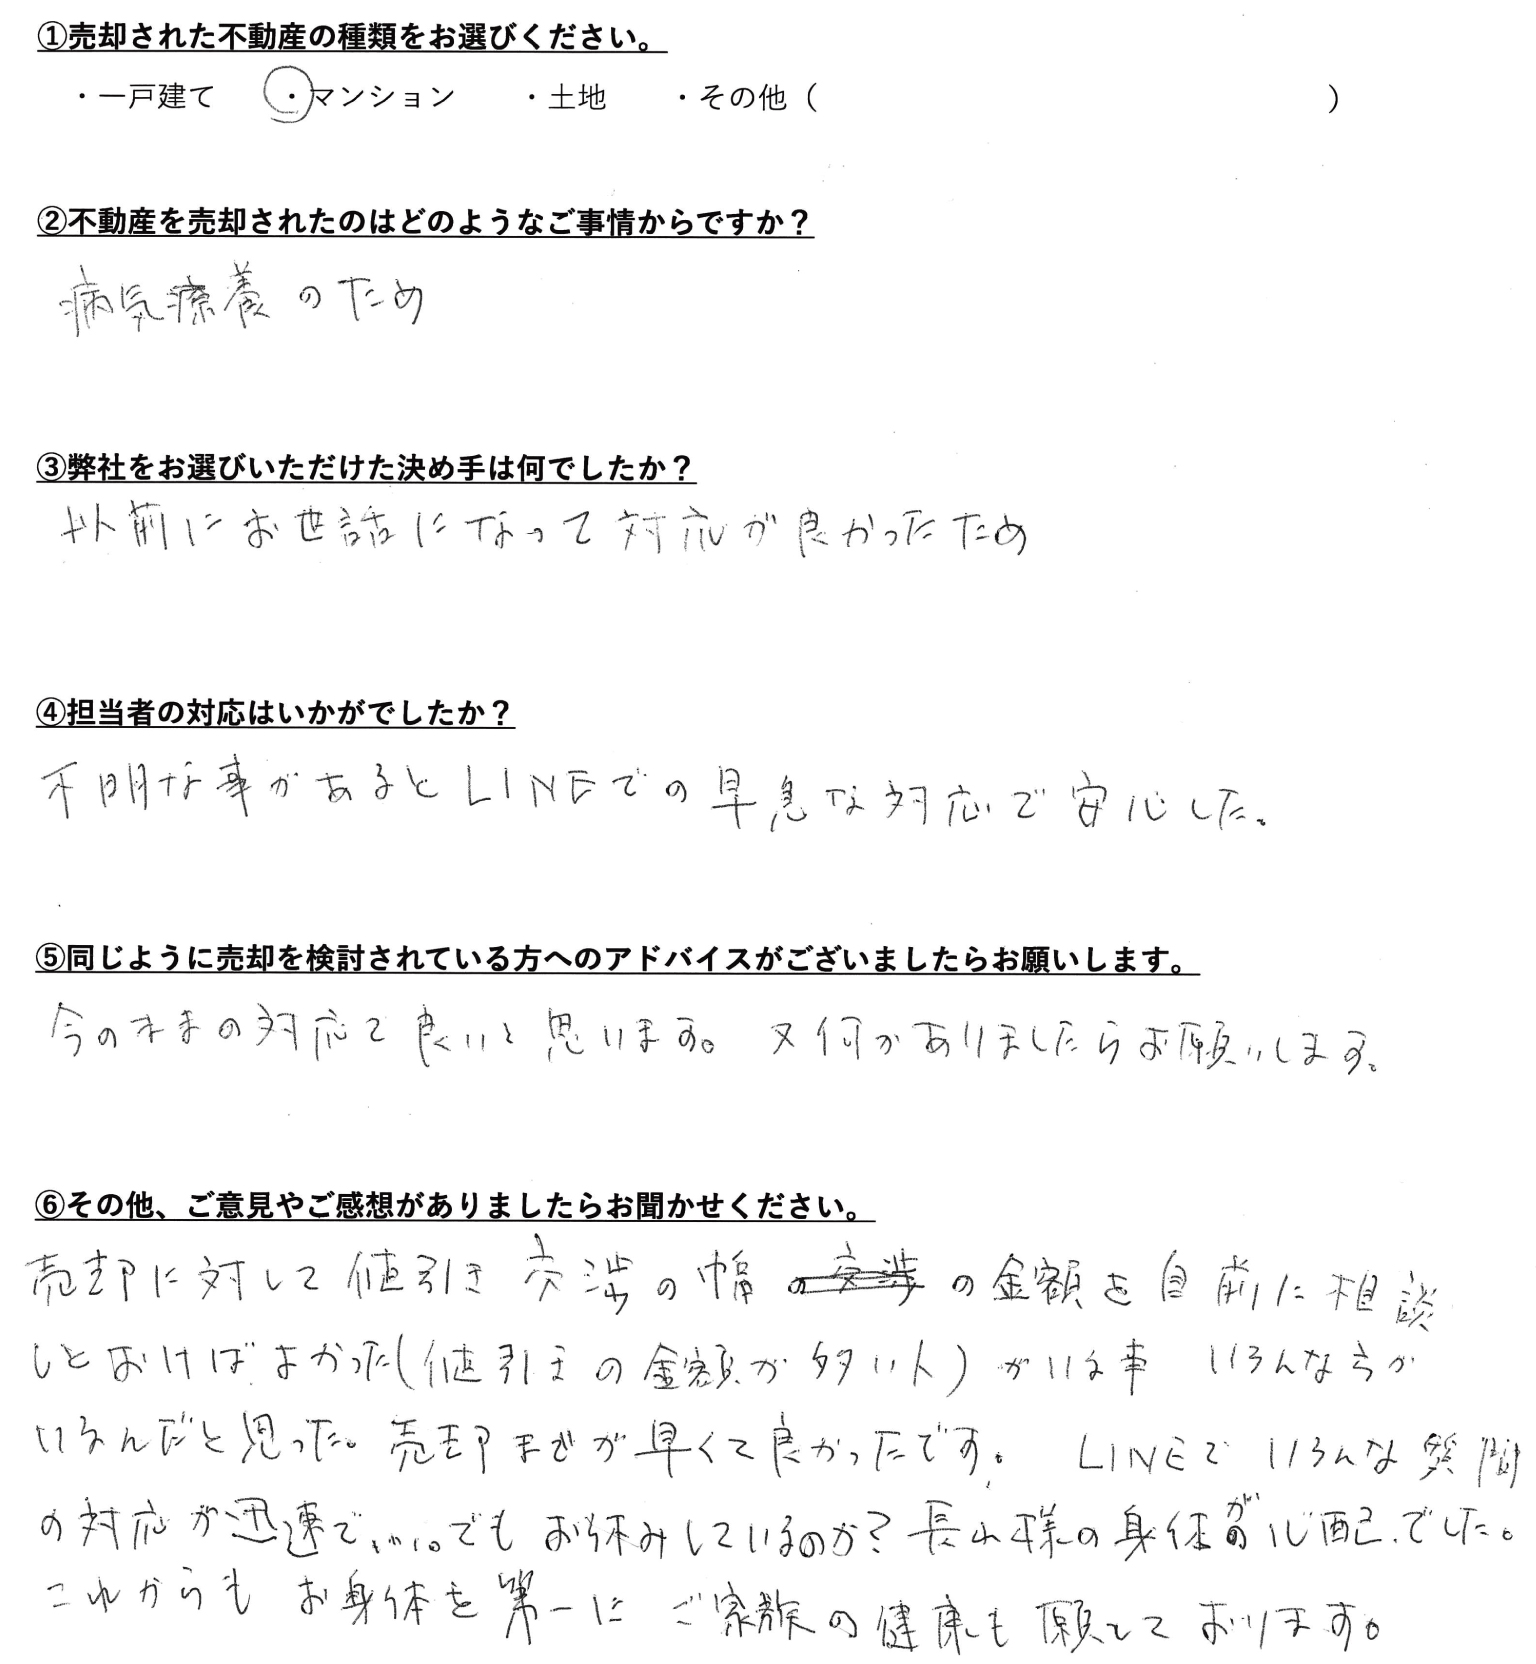 ①売却された不動産の種類をお選びください。
・一戸建て ・マンション ・土地 ・その他（ ）
②不動産を売却されたのはどのようなご事情からですか？
病気療養のため
③弊社をお選びいただけた決め手は何でしたか？
以前にお世話になって対応が良かったため
④担当者の対応はいかがでしたか？
不明な事があるとLINEでの早急な対応で安心した。
⑤同じように売却を検討されている方へのアドバイスがございましたらお願いします。
今のままの対応で良いと思います。又何かありましたらお願いします。
⑥その他、ご意見やご感想がありましたらお聞かせください。
売却に対して値引き交渉の幅の交渉の金額を自前に相談
しとおけばよかった(値引きの金額が多い人)がいる事 いろんな方が
いるんだと思った。売却までが早くて良かったです。 LINEでいろんな質問
の対応が迅速で、、、。でもお休みしているのか？長山様の身体が心配でした。
これからもお身体を第一にご家族の健康も願っております。